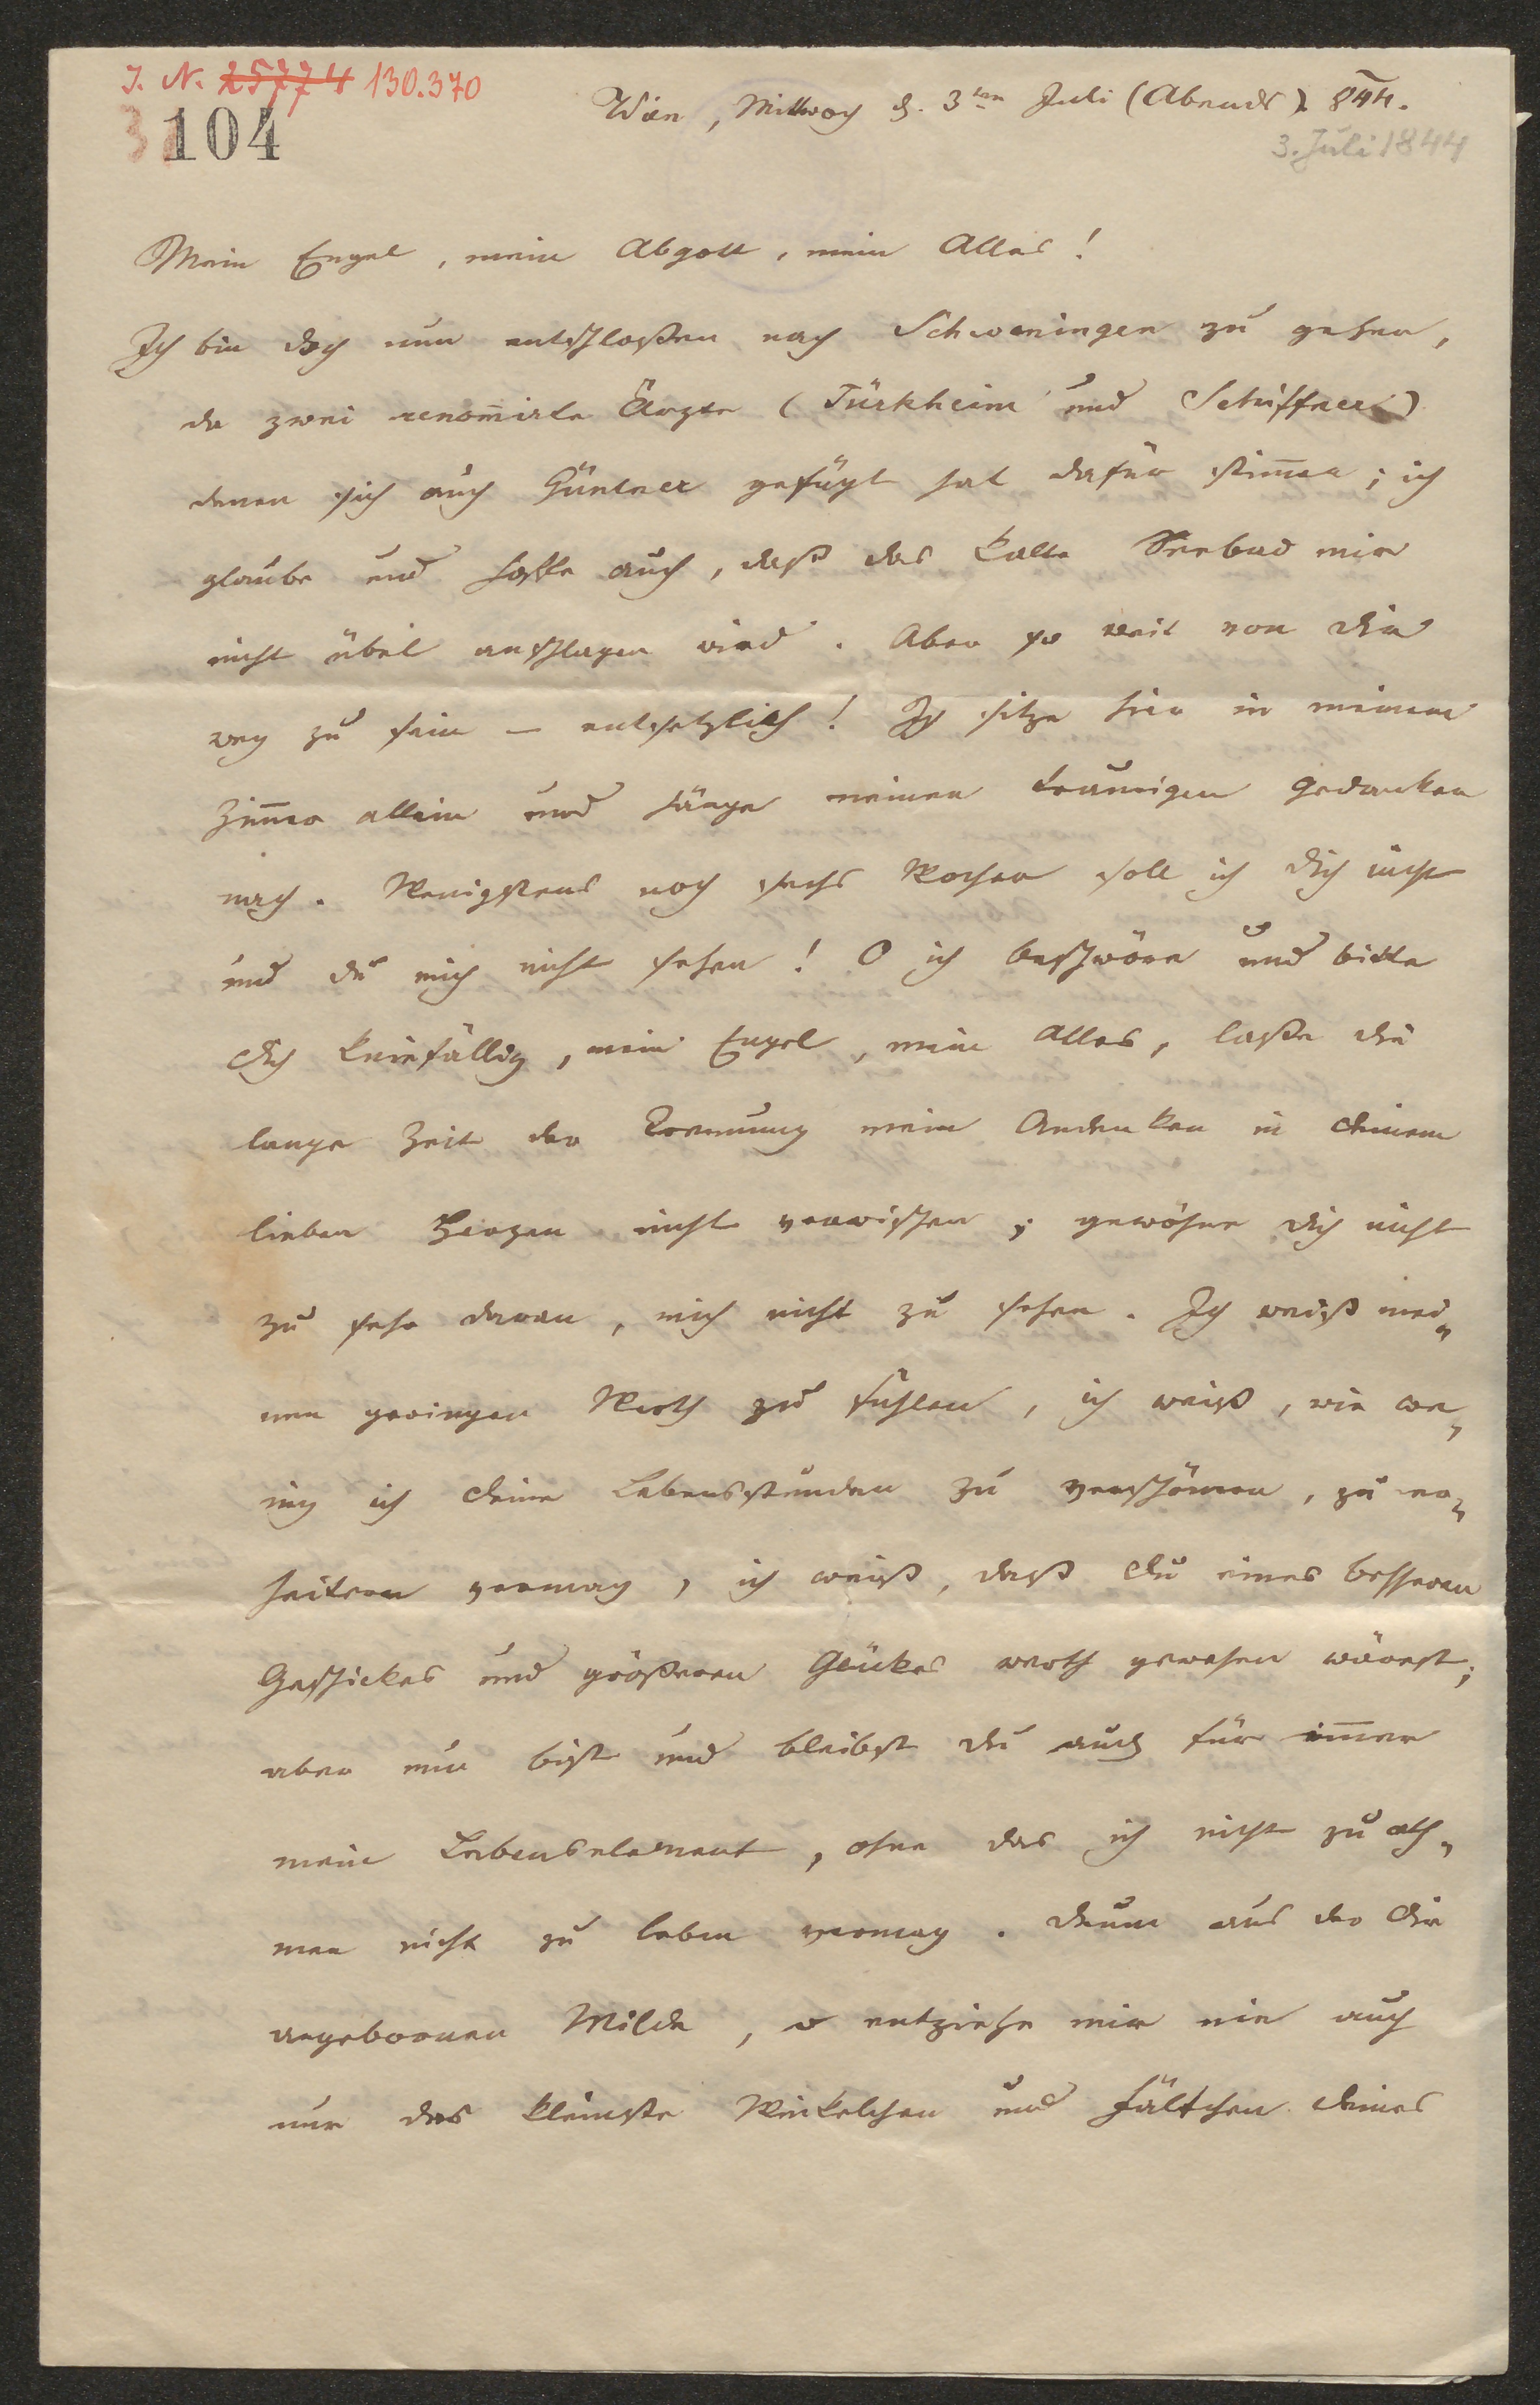 J. N. 25774 130.370
104
Wien, Mittwoch d. 3ten Juli (Abends) 844.
3. Juli 1844
Mein Engel, mein Abgott, mein Alles!
Ich bin doch nun entschloßen nach Scheveningen zu gehen,
da zwei renom̄irte Ärzte (Türkheim und Schiffner)
denen sich auch Güntner gefügt hat dafür stim̄en; ich
glaube und hoffe auch, daß das kalte Seebad mir
nicht übel anschlagen wird. Aber so weit von dir
weg zu sein – entsetzlich! Ich sitze hier in meinem
Zim̄er allein und hänge meinen traurigen Gedanken
nach. Wenigstens noch sechs Wochen soll ich dich nicht
und du mich nicht sehen! O ich beschwöre und bitte
dich kniefällig, mein Engel, mein Alles, laße die
lange Zeit der Trennung mein Andenken in deinem
lieben Herzen nicht verwischen; gewöhne dich nicht
zu sehr daran, mich nicht zu sehen. Ich weiß mei„
nen geringen Werth zu fühlen, ich weiß, wie we„
nig ich deine Lebensstunden zu verschönen, zu er„
heitern vermag, ich weiß, daß du eines besseren
Geschickes und größeren Glückes werth gewesen wärest;
aber nun bist und bleibst du auch für im̄er
mein Lebenselement, ohne das ich nicht zu ath„
men nicht zu leben vermag. Drum aus der dir
angebornen Milde, o entziehe mir nie auch
nur das kleinste Winkelchen und Fältchen deines